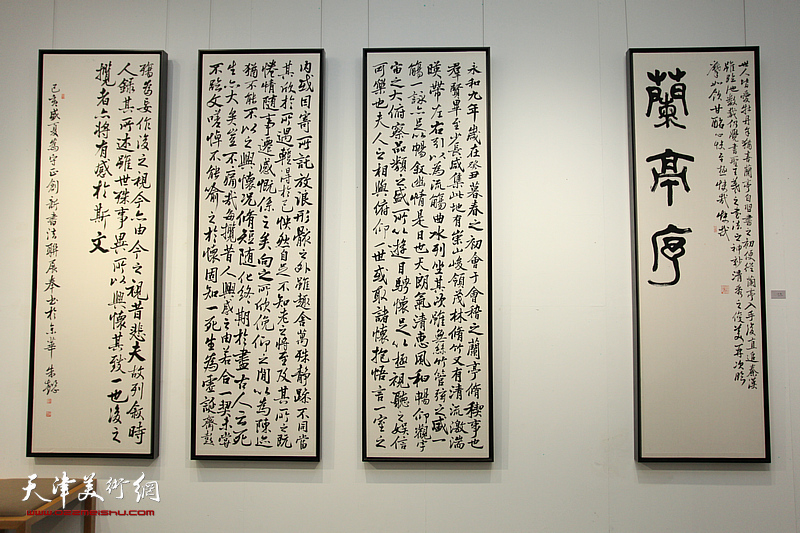 蘭亭序
世人皆愛牡丹
永和九年歲在癸丑暮春之初會于會稽之蘭亭脩稧事也
羣賢畢至少長咸集此地有崇山峻領茂林脩竹又有清流激湍
暎帶左右引以為流觴曲水列坐其次雖無絲竹管弦之盛一
觴一詠亦足以暢敘幽情是日也天朗氣清惠風和暢仰觀宇
宙之大俯察品類之盛所以遊目騁懷足以極視聽之娛信
可樂也夫人之相與俯仰一世或取諸懷抱悟言一室之
內或因寄所託放浪形骸之外雖趣舍萬殊靜躁不同當
其欣於所遇輕得於己怏然自足不知老之將至及其所之既
惓情隨事遷感慨係之矣向之所欣俛仰之間以為陳迹
猶不能不以之興懷況脩短隨化終期於盡古人云死
生亦大矣豈不痛哉每攬昔人興感之由若合一契未嘗
不臨文嗟悼不能喻之於懷固知一死生為虛誕齊彭
殤為妄作後之視今亦由今之視昔悲夫故列敘時
人錄其所述雖世殊事異所以興懷其致一也後之
攬者亦將有感於斯文
己亥盛夏為守正創新書法聯展奉書於京華朱懿
天津美術網
www.022meishu.com